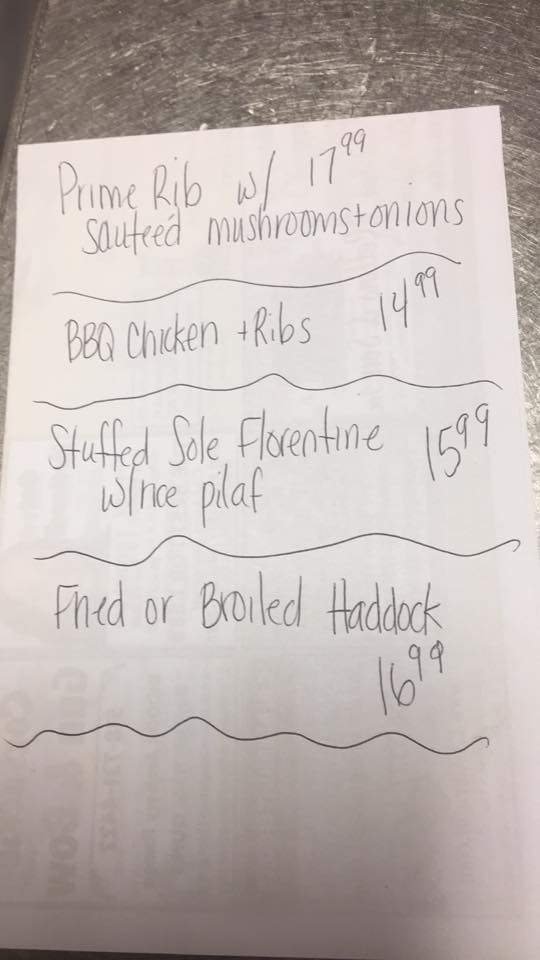 Prime Rib w/ 17 99
Sauteed mushrooms + onions
BBQ Chicken + Ribs 14 99
Stuffed Sole Florentine 15 99
w/rice pilaf
Fried or Broiled Haddock
16 99